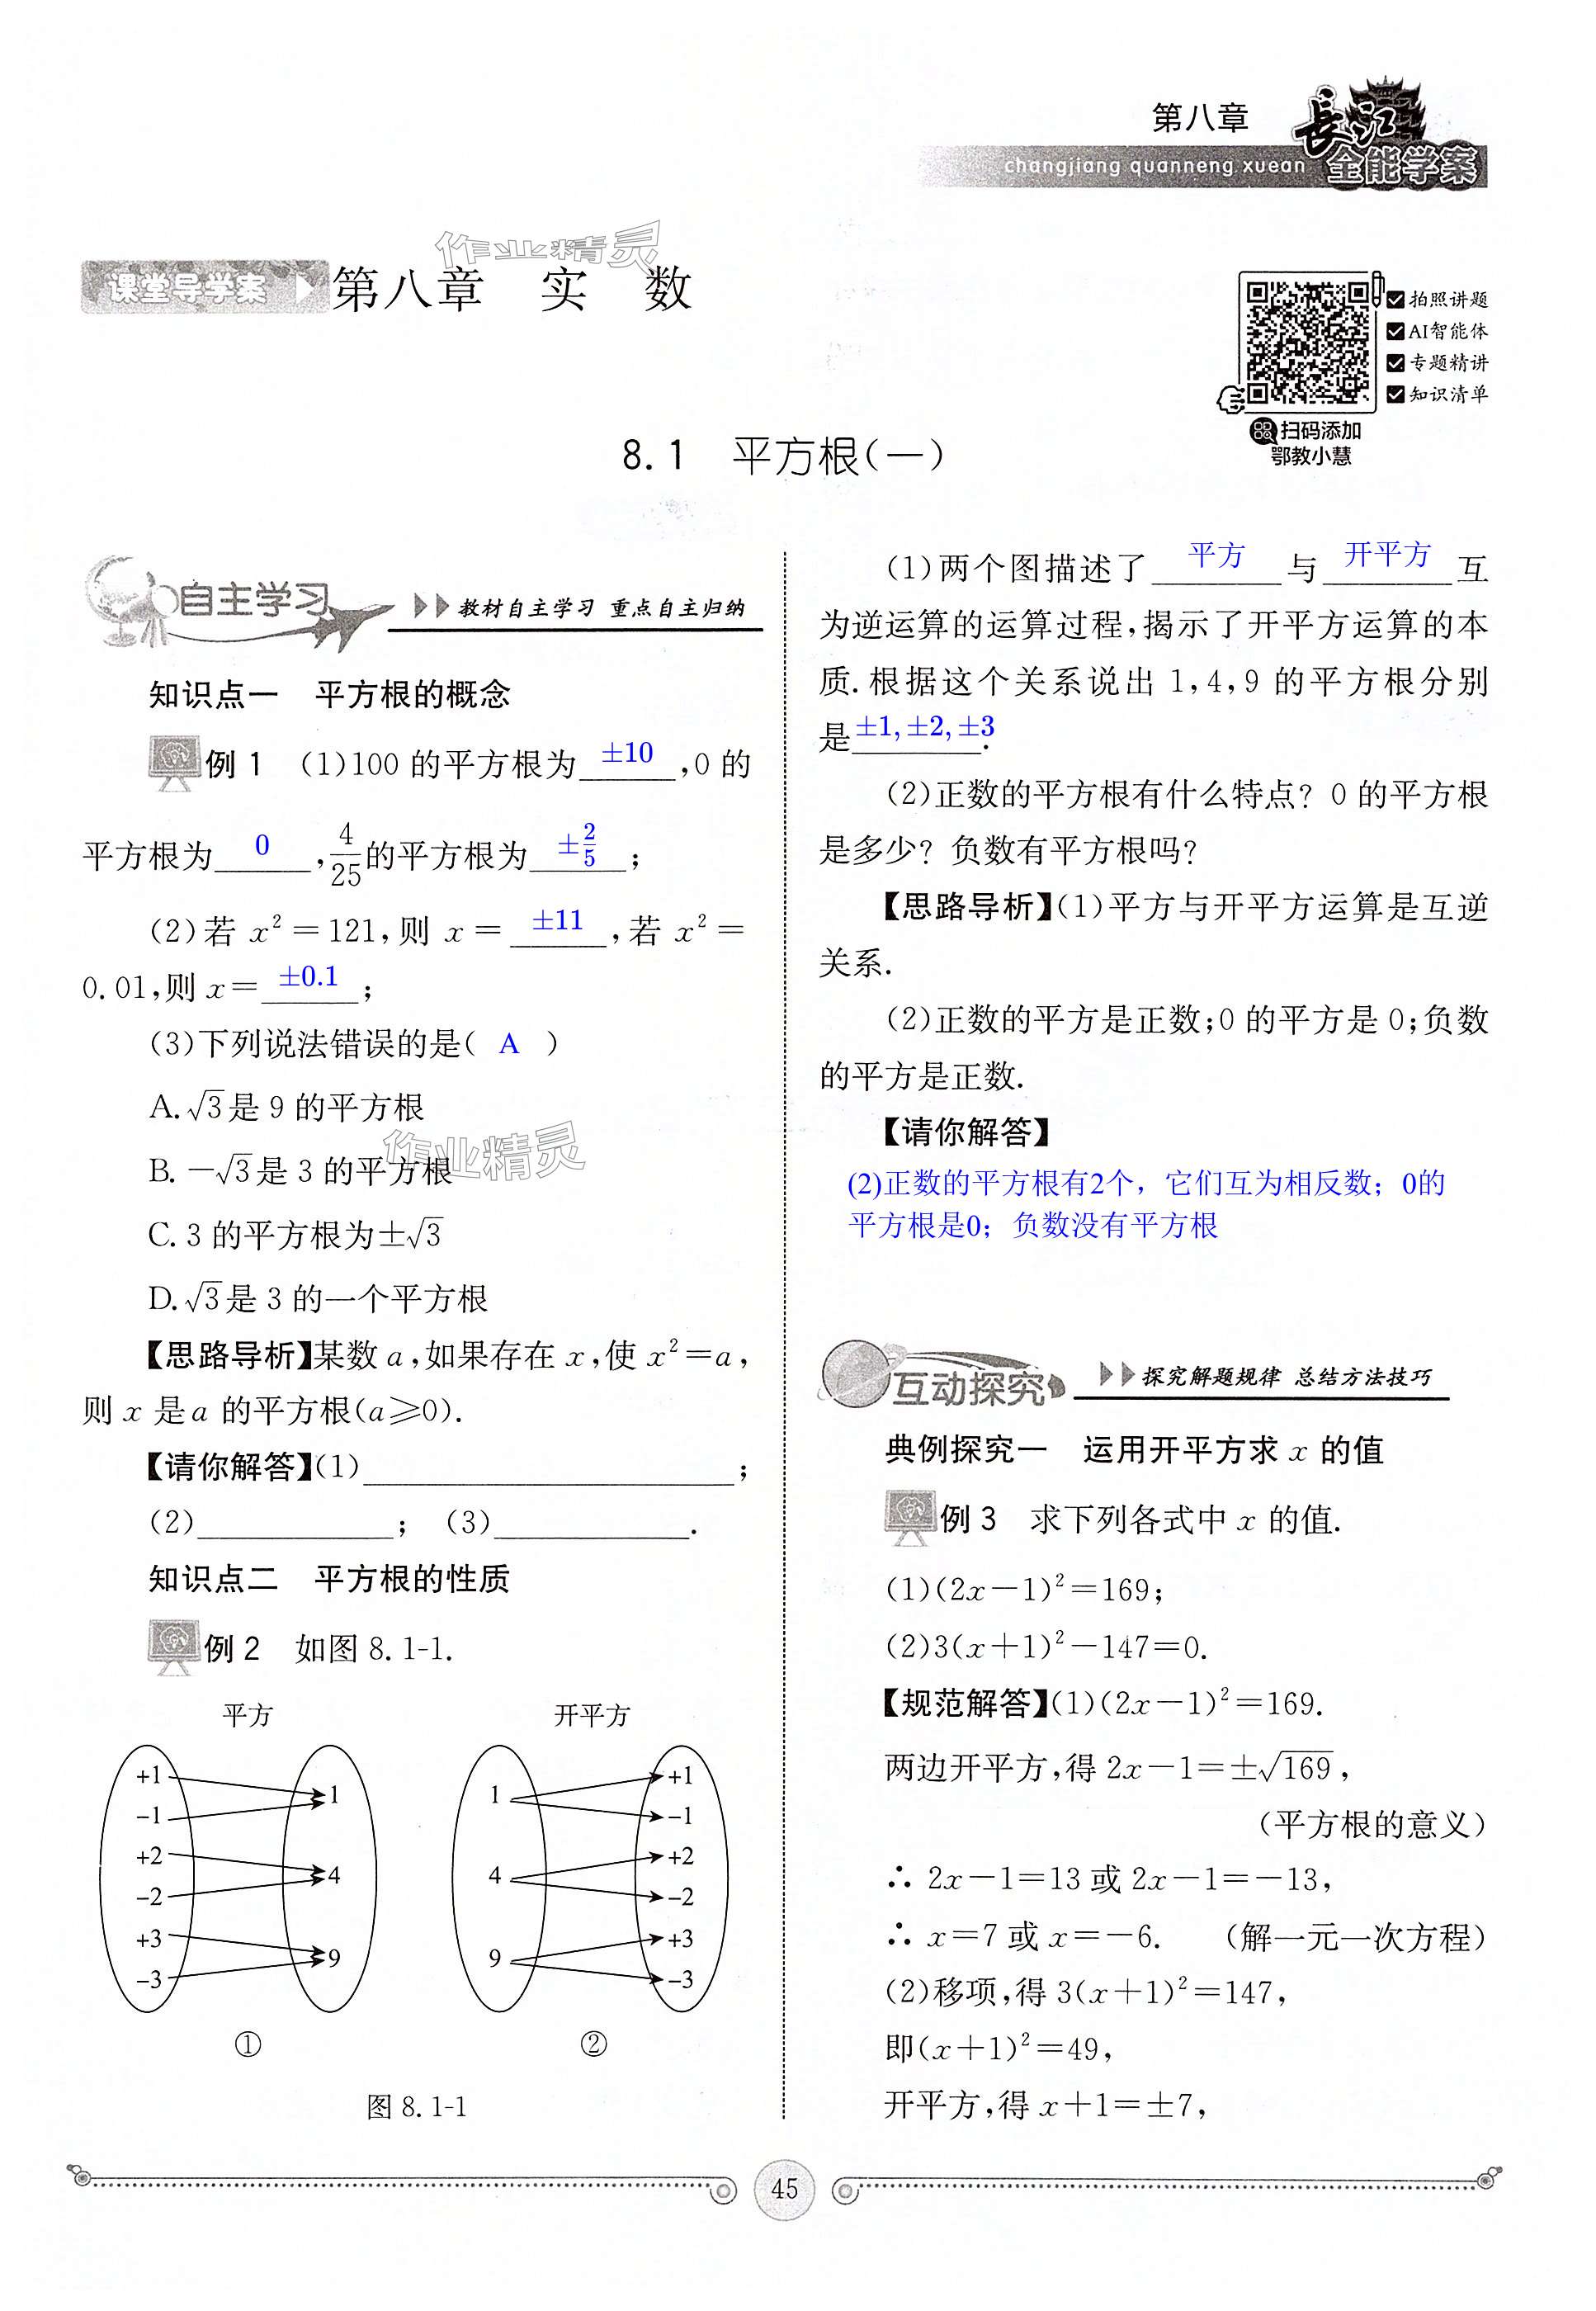 第八章
長江
全能学案
changjiang quanneng xuean
作业精灵
课堂导学案 第八章 实 数
拍照讲题
AI智能体
专题精讲
知识清单
扫码添加
鄂教小慧
8.1 平方根(一)
自主学习 教材自主学习 重点自主归纳
知识点一 平方根的概念
例1 (1)100的平方根为 ±10 ,0的
平方根为 0 ,4/25的平方根为 ±2/5 ;
(2)若 x²=121,则 x= ±11 ,若 x²=
0.01,则 x= ±0.1 ;
(3)下列说法错误的是( A )
A.√3是9的平方根
作业精灵
B.-√3是3的平方根
C.3的平方根为±√3
D.√3是3的一个平方根
【思路导析】某数a,如果存在x,使x²=a,
则x是a的平方根(a≥0).
【请你解答】(1)____________;
(2)____________; (3)____________.
知识点二 平方根的性质
例2 如图8.1-1.
平方 开平方
+1 1 1 +1
-1 -1
+2 4 4 +2
-2 -2
+3 9 9 +3
-3 -3
① ②
图8.1-1
(1)两个图描述了 平方 与 开平方 互
为逆运算的运算过程,揭示了开平方运算的本
质.根据这个关系说出1,4,9的平方根分别
是 ±1,±2,±3 .
(2)正数的平方根有什么特点? 0的平方根
是多少? 负数有平方根吗?
【思路导析】(1)平方与开平方运算是互逆
关系.
(2)正数的平方是正数;0的平方是0;负数
的平方是正数.
【请你解答】
(2)正数的平方根有2个，它们互为相反数；0的
平方根是0；负数没有平方根
互动探究 探究解题规律 总结方法技巧
典例探究一 运用开平方求x的值
例3 求下列各式中x的值.
(1)(2x-1)²=169;
(2)3(x+1)²-147=0.
【规范解答】(1)(2x-1)²=169.
两边开平方,得2x-1=±√169,
(平方根的意义)
∴ 2x-1=13或2x-1=-13,
∴ x=7或x=-6. (解一元一次方程)
(2)移项,得3(x+1)²=147,
即(x+1)²=49,
开平方,得x+1=±7,
45